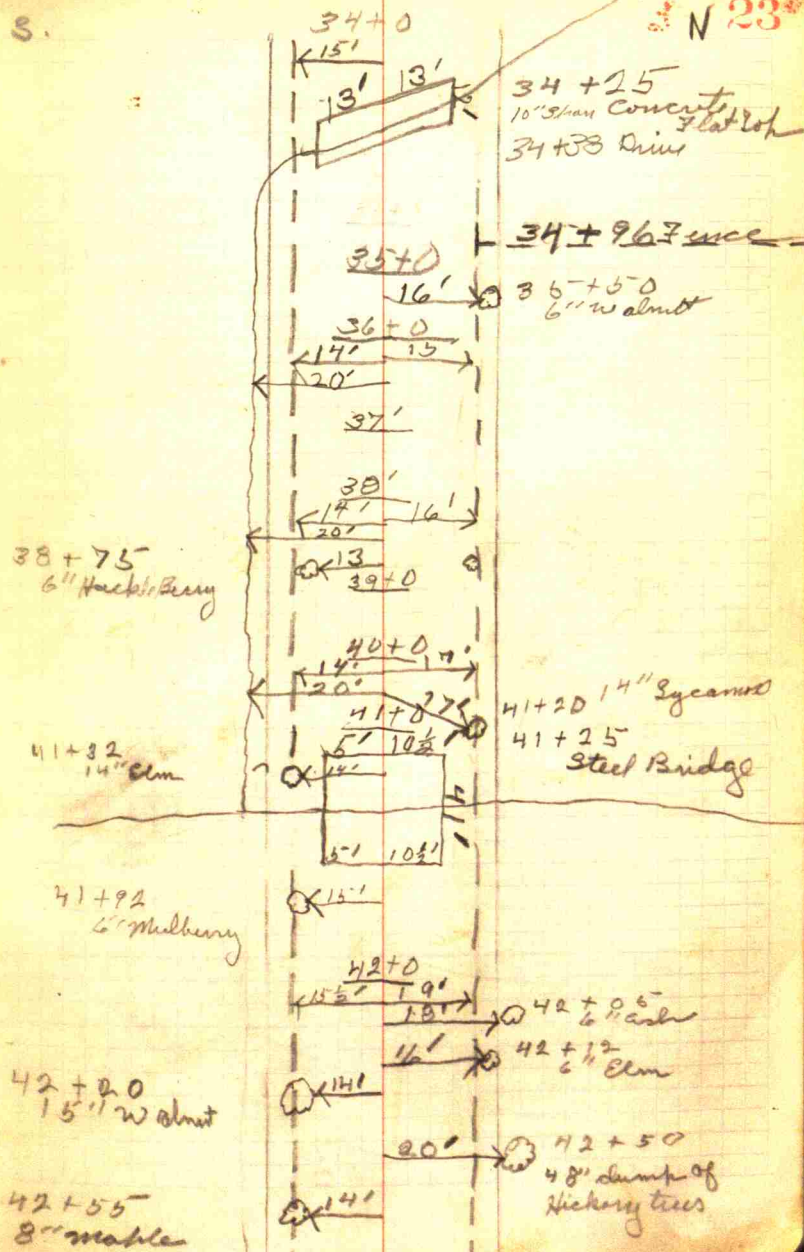 S.
34+0
N 23
15'
13' 13'
34+25
10' Span Concrete
Flat Top
34+38 Drive
34+96 Fence
35+0
16'
35+50
6" Walnut
36+0
14' 15
20'
37'
38'
14' 16'
20'
38+75
6" HackBerry
13
39+0
40+0
14' 17'
20'
17'
41+20 14" Sycamore
41+0
41+25
Steel Bridge
5' 10½'
41+32
14" Elm
14'
41'
5' 10½'
41+92
6" Mulberry
15'
42+0
15½' 19'
18'
42+05
6" Ash
16'
42+12
6" Elm
42+20
15" Walnut
14'
20'
42+50
48" clump of
Hickory trees
42+55
8" maple
14'